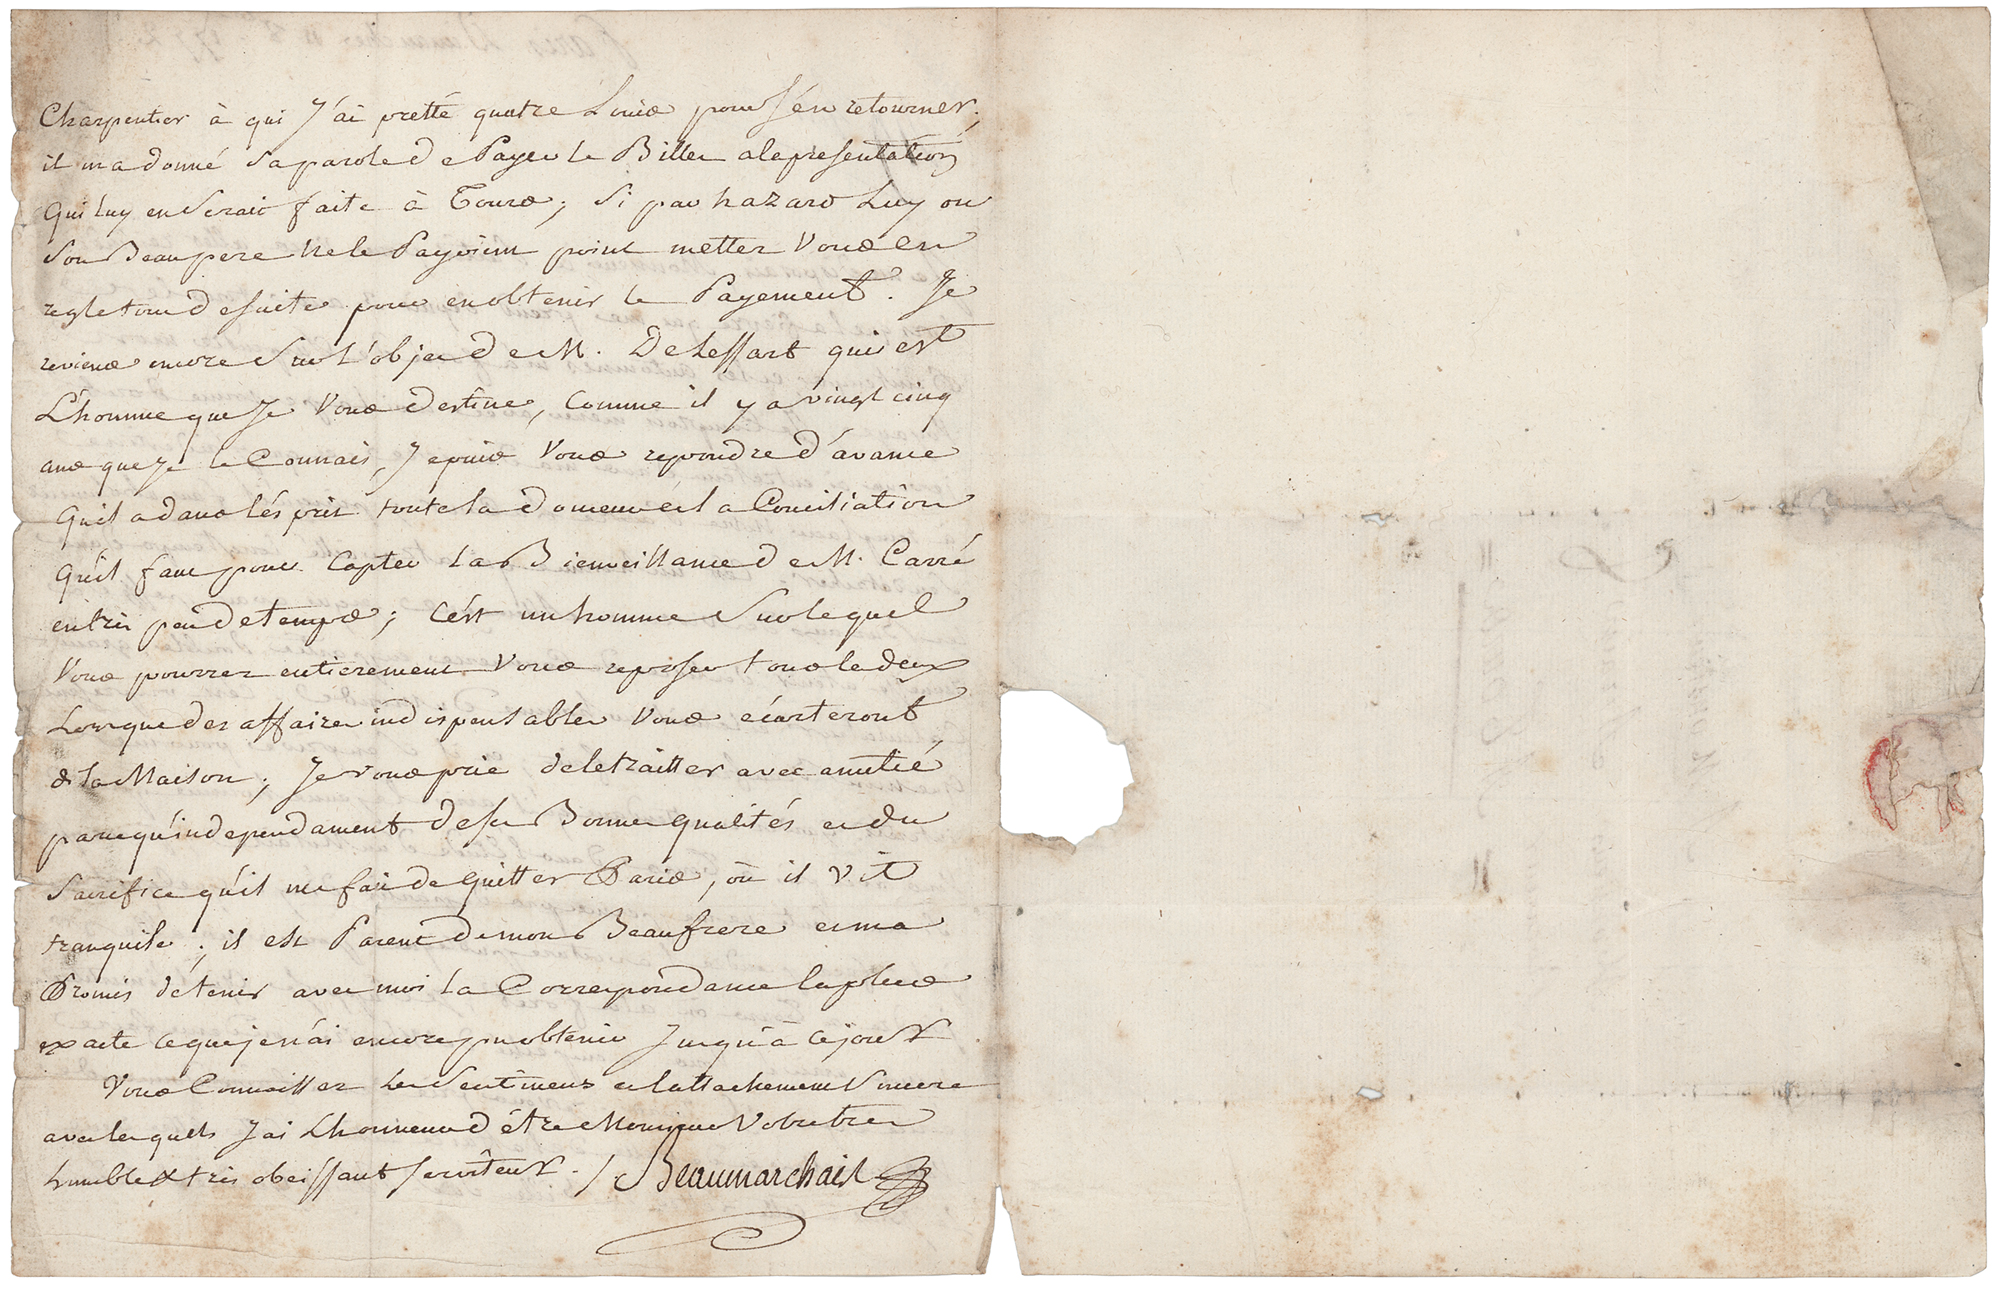 Charpentier à qui J'ai pretté quatre Louis pour s'én retourner;
il ma donné sa parole de Payer le Billet a la presentation
qui luy en serait faite à Tours; si par hazard Luy ou
son Beaupere ne le Payoient point metter Vous en
regle tout de suite pour en obtenir le Payement. Je
reviens encore sur l'objet de M. De Lessart qui est
L'homme que Je Vous destine, comme il y a vingt cinq
ans que Je le Connais, Je puis Vous repondre d'avance
qu'il a dans l'ésprit toute la douceur et la Conciliation
qu'il faut pour Capter la Bienveillance de M. Carré
en très peu de temps; c'est un homme sur le quel
Vous pourrez entierement Vous reposer tous le deux
Lorsque des affaires indispensables Vous écarteront
de la Maison; Je vous prie de le traitter avec amitié
parce qu'independament de ses Bonnes qualités et du
sacrifice qu'il me fait de quitter Paris, où il vit
tranquile; il est Parent de mon Beaufrere et ma
Promis de tenir avec moi la Correspondance la plus
exacte ce que je n'ai encore pu obtenir Jusqu'à ce jour
Vous Connaisser les sentimens et lattachement sincere
avec les quels J'ai L'honneur d'être Monsieur Votre tres
humble & très obeissant serviteur. / Beaumarchais